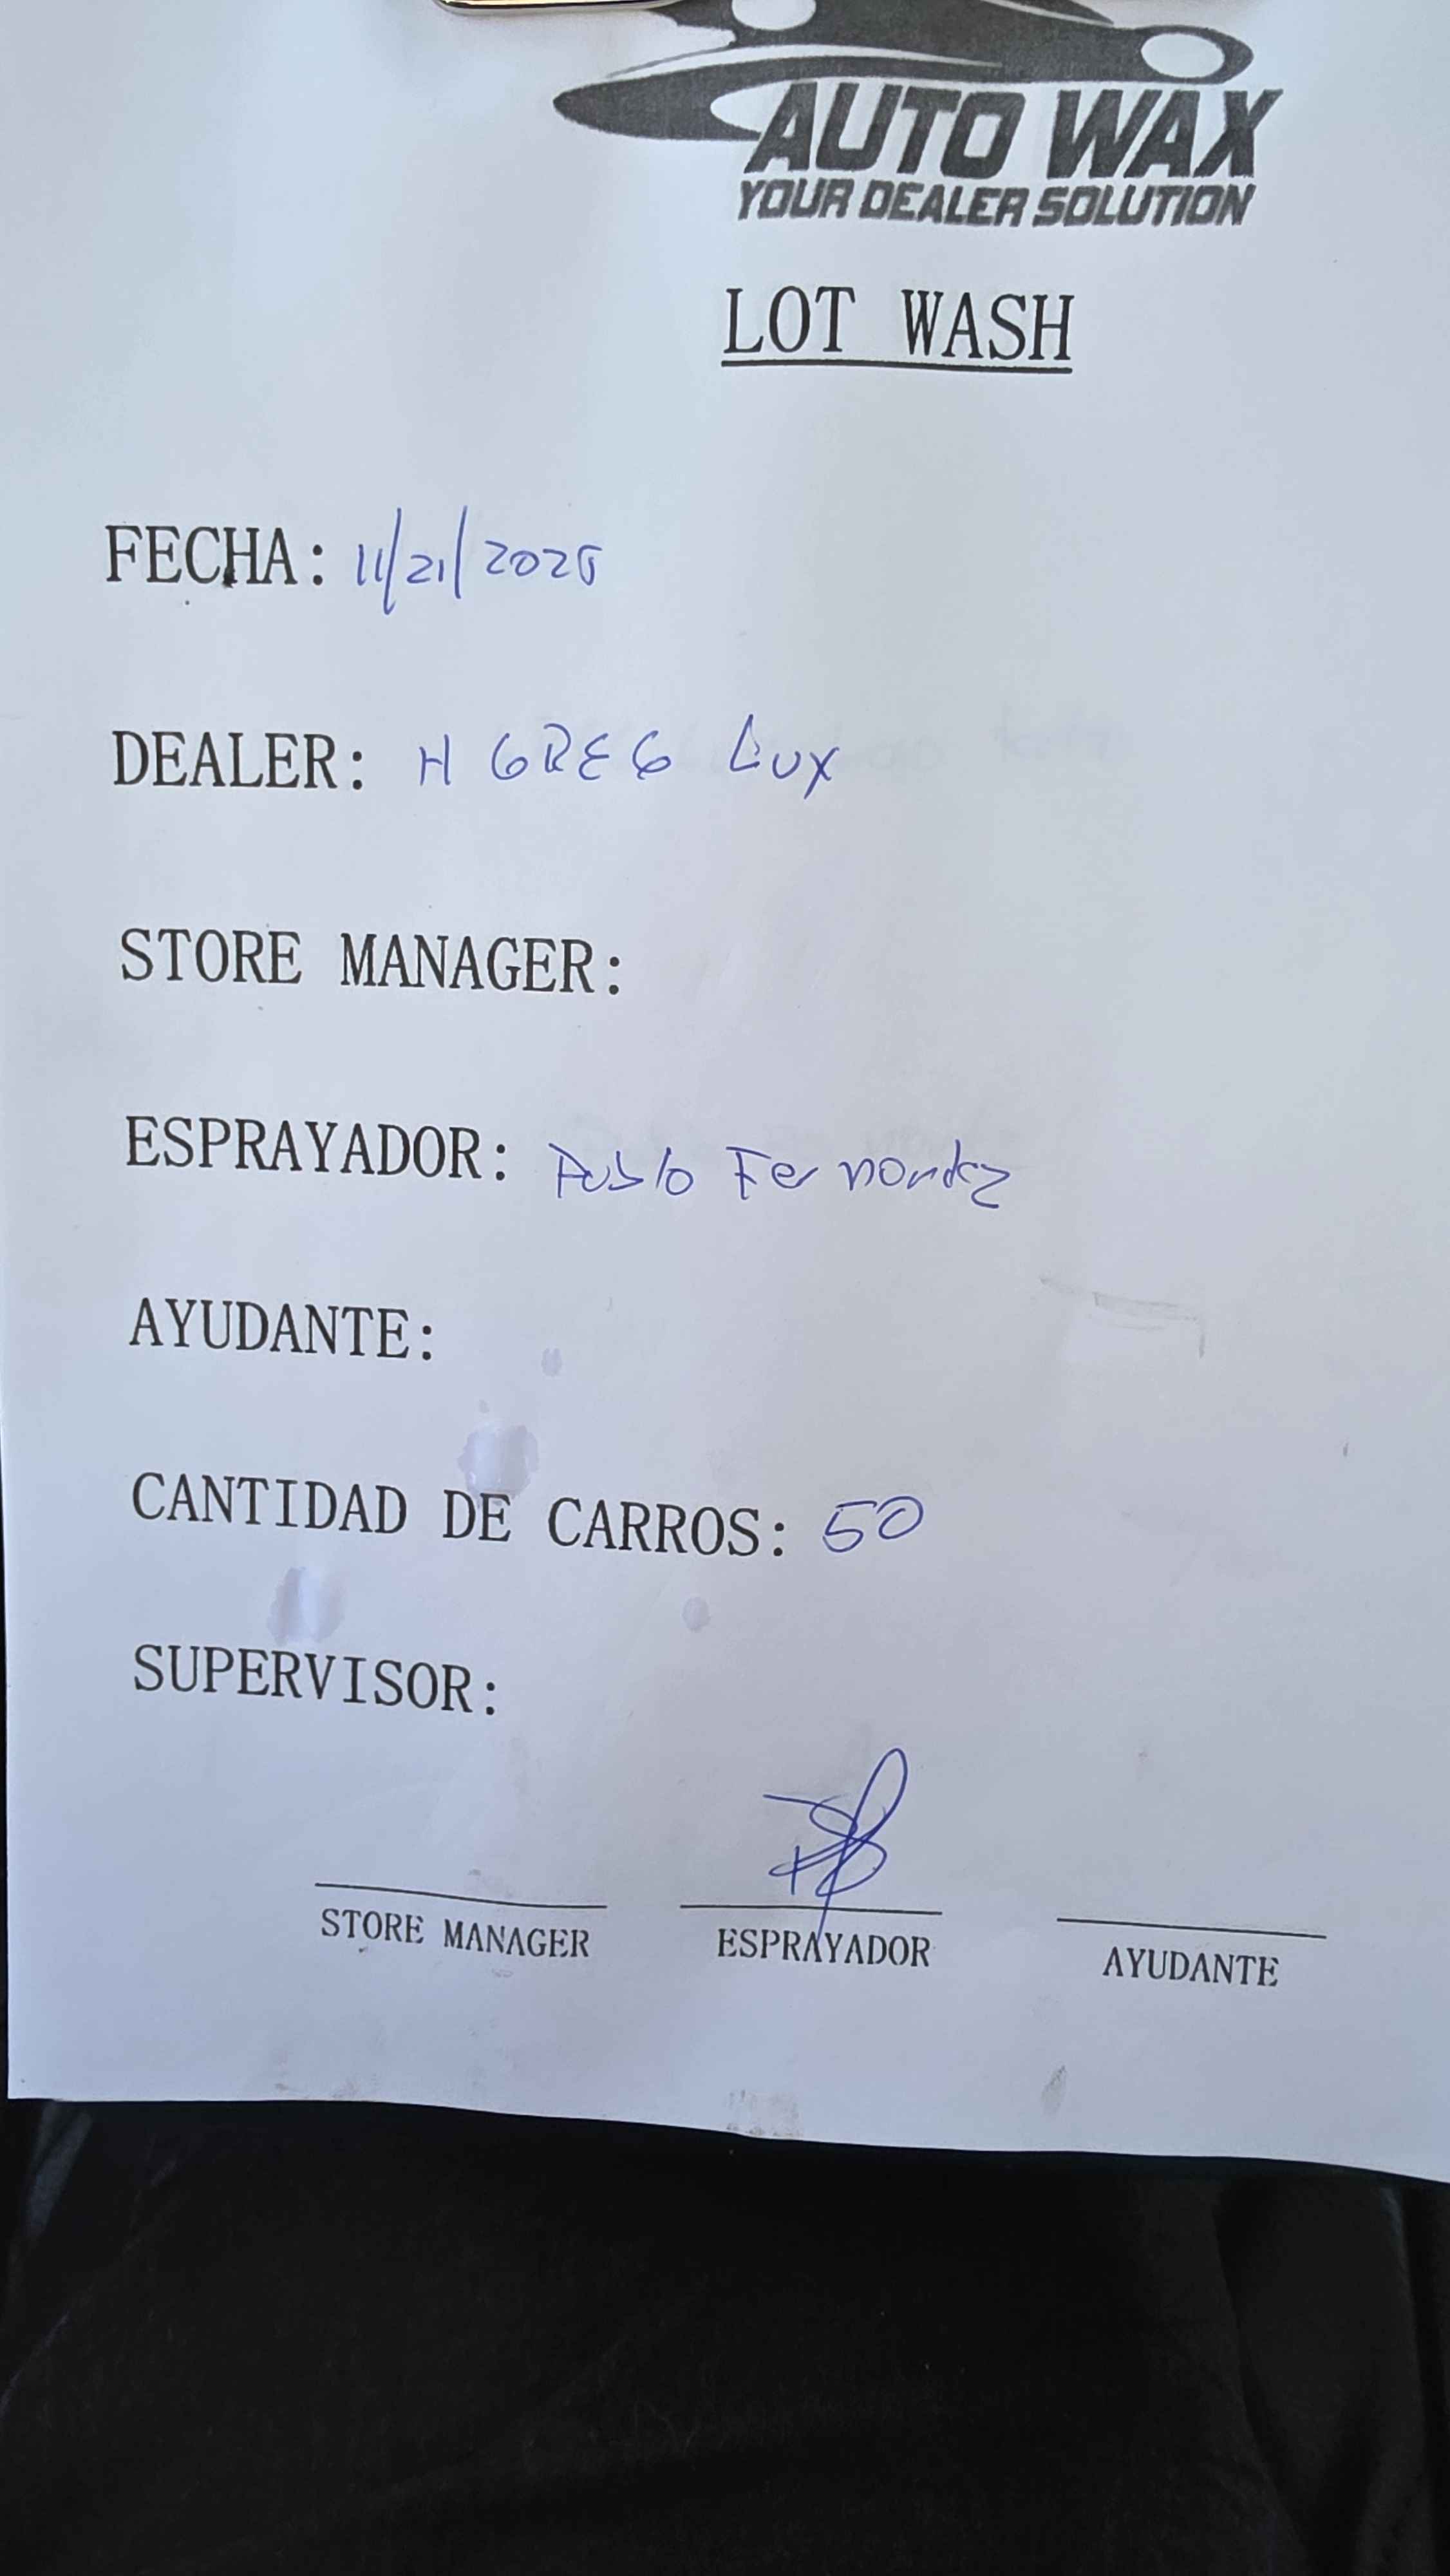 AUTO WAX
YOUR DEALER SOLUTION
LOT WASH
FECHA: 11/21/2025
DEALER: H GREG LUX
STORE MANAGER:
ESPRAYADOR: Pablo Fernandez
AYUDANTE:
CANTIDAD DE CARROS: 50
SUPERVISOR:
STORE MANAGER ESPRAYADOR AYUDANTE